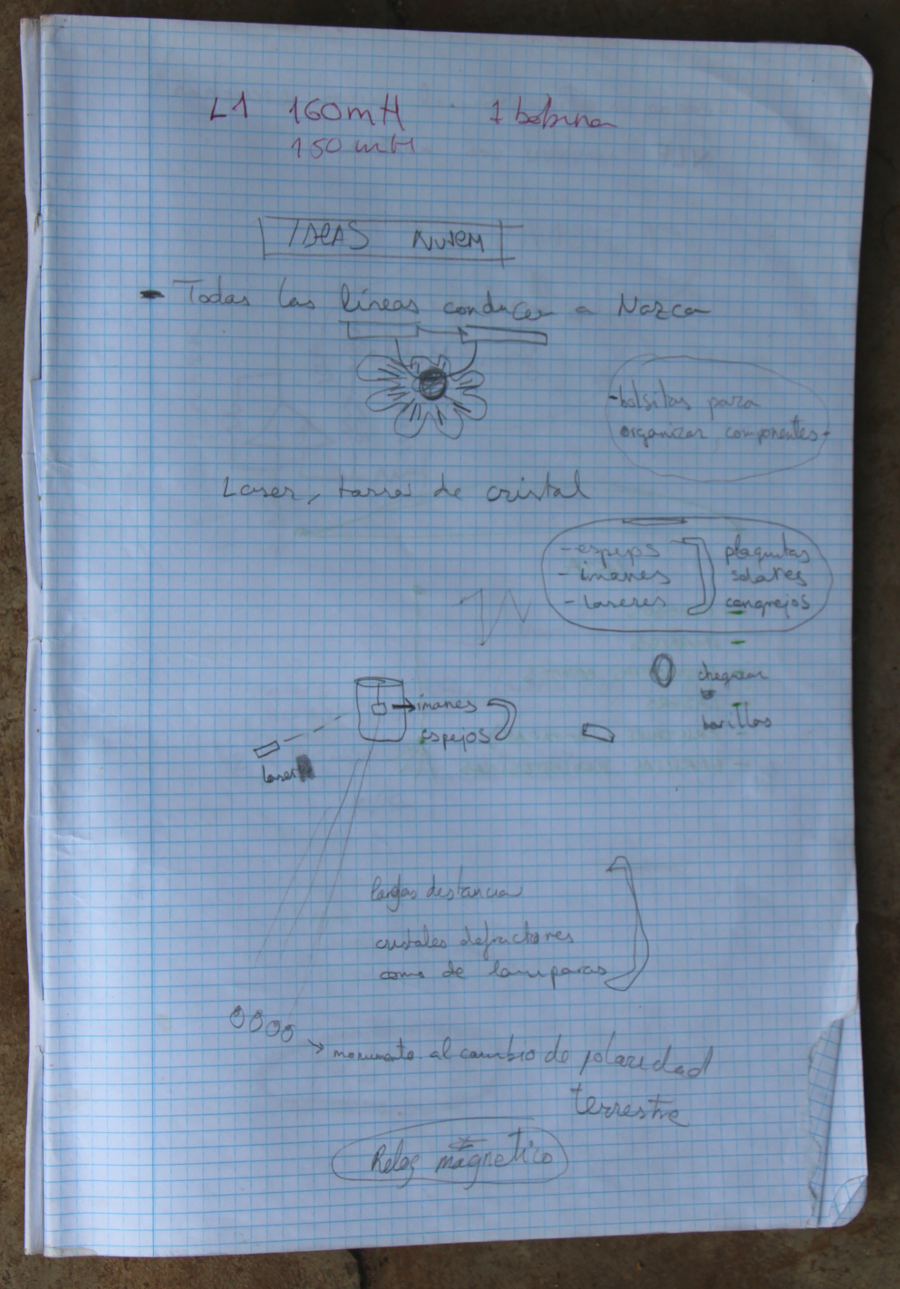 L1 160mH 1 bobina
150 mH
IDEAS NUVEM
- Todas las líneas conducen a Nazca
- bolsitas para
organizar componentes
Laser, tarro de cristal
- espejos
- imanes
- laseres
plaquitas
solares
cangrejos
chequear
barillas
imanes
espejos
laser
largas distancia
cristales defractores
como de lamparas
monumento al cambio de polaridad
terrestre
Reloj magnetico